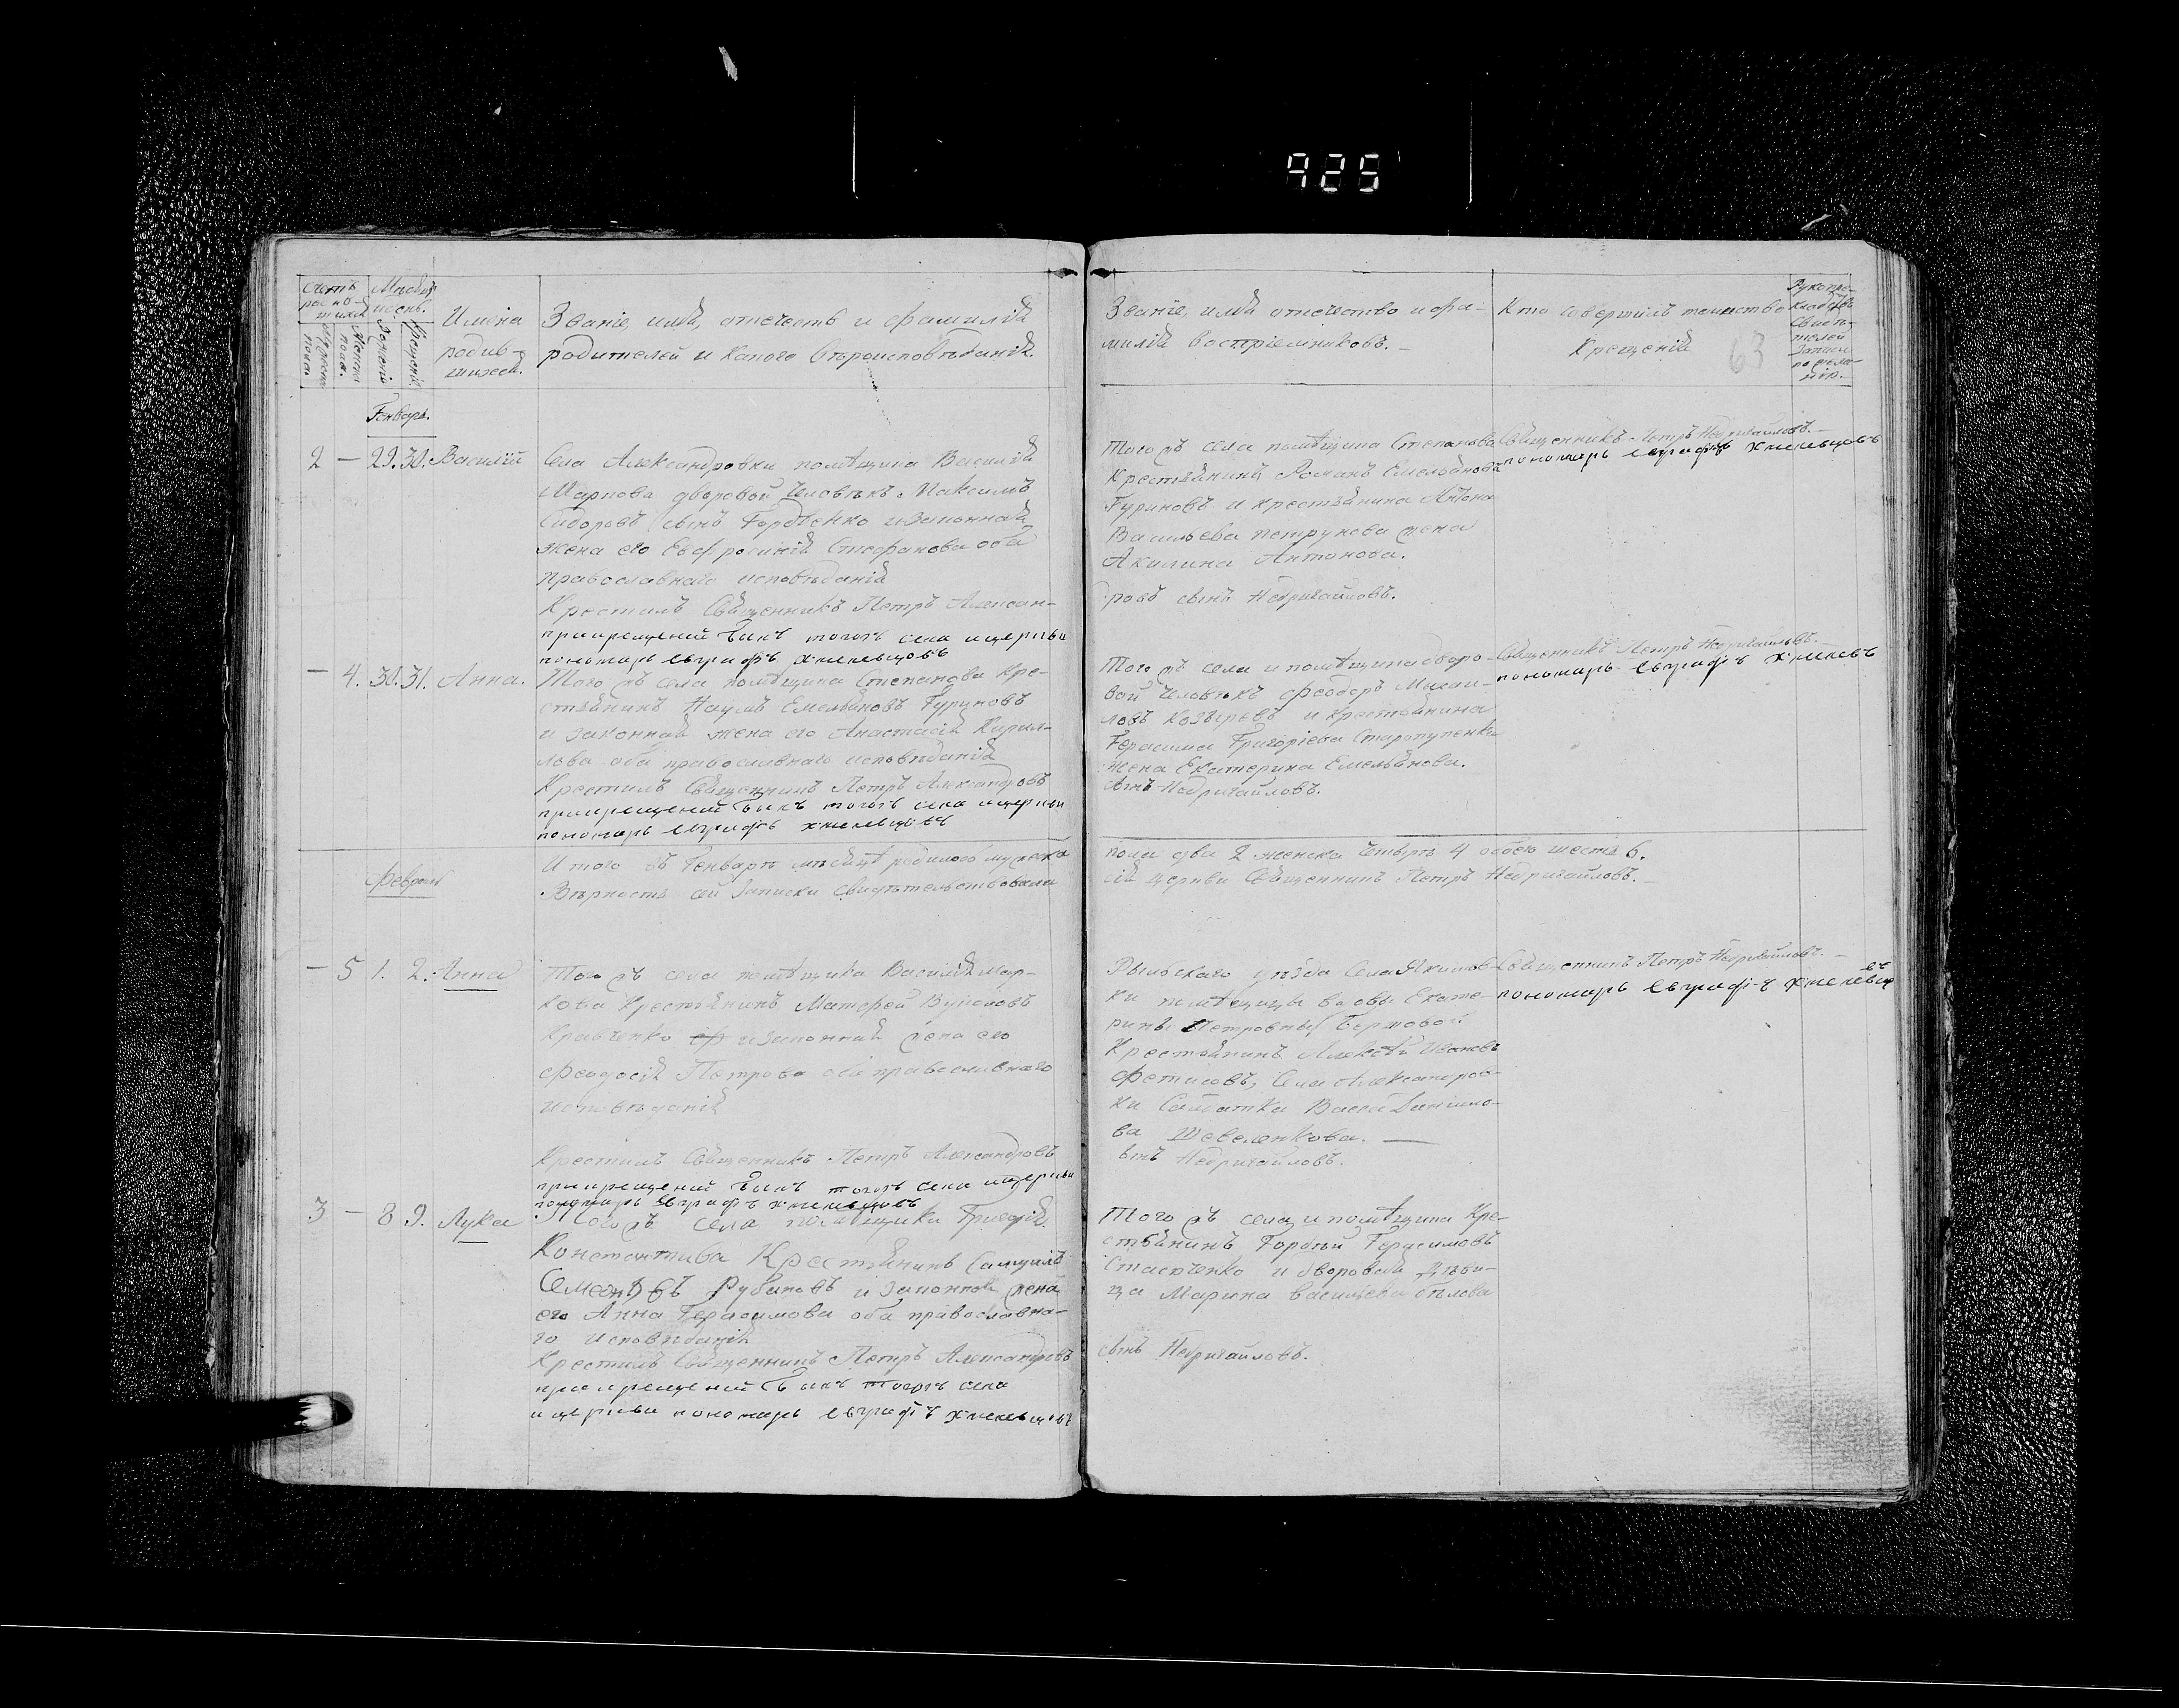 425
Счетъ родив-шихся
Мѣсяцъ и день.
Мужеска пола.
Женска пола.
Рожденія
Крещенія.
Имена
родив-
шихся.
Званіе, имя, отечество и фамилія
родителей и какого вѣроисповѣданія.
Званіе, имя отечество и фа-
милія воспріемниковъ.
Кто совершилъ таинство
Крещенія
63
Генварь.
2 — 29. 30. Василій
Села Александровки помѣщика Василія
Маркова дворовой человѣкъ Максимъ
Сидоровъ сынъ Гордѣенко и законная
жена его Евфросинія Стефанова оба
православнаго исповѣданія
Крестилъ Священникъ Петръ Алексан-
при крещеній былъ тогожъ села и церкви
пономарь Евграфъ Хмелевцовъ
Того жъ села помѣщика Степанова
Крестьянинъ Романъ Емельяновъ
Гуриновъ и крестьянина Антона
Васильева Петрунова жена
Акилина Антонова.
ровъ сынъ Недригайловъ.
Священникъ Петръ Недригайловъ.
пономарь Евграфъ Хмелевцовъ
— 4. 30. 31. Анна.
Того жъ села помѣщика Степанова Кре-
стьянинъ Наумъ Емельяновъ Гуриновъ
и законная жена его Анастасія Кирил-
лова оба православнаго исповѣданія
Крестилъ Священникъ Петръ Александровъ
при крещеній былъ тогожъ села и церкви
пономарь Евграфъ Хмелевцовъ
Того жъ села и помѣщика дворо-
вой человѣкъ Феодоръ Михаи-
ловъ Козыревъ и крестьянина
Герасима Григоріева
жена Екатерина Емельянова.
сынъ Недригайловъ.
Священникъ Петръ Недригайловъ.
пономарь Евграфъ Хмелевъ
Февраль
Итого въ Генварѣ мѣсяцѣ родилось мужеска
Вѣрность сей записки свидѣтельствовала
пола два 2 женска четыре 4 обоего шесть 6.
сія церкви Священникъ Петръ Недригайловъ.
— 5 1. 2. Анна
Того жъ села помѣщика Василія Мар-
кова Крестьянинъ Матфей
Кравченко и законная жена его
Феодосія Петрова оба православнаго
исповѣданія
Крестилъ Священникъ Петръ Александровъ
при крещеній былъ тогожъ села и церкви
пономарь Евграфъ Хмелевцовъ
Рыльскаго уѣзда Села Якимов-
ки помѣщицы вдовы Екате-
рины Петровны
Крестьянинъ Алексѣй Ивановъ
Фетисовъ, Села Александров-
ки Солдатка
ва Шевеленкова.
вынъ Недригайловъ.
Священникъ Петръ Недригайловъ.
пономарь Евграфъ Хмелевцовъ
3 — 8 9. Лука
Того жъ села помѣщика Григорія
Константинова Крестьянинъ Самуилъ
Семеновъ Рубановъ и законная жена
его Анна Герасимова оба православна-
го исповѣданія
Крестилъ Священникъ Петръ Александровъ
при крещеній былъ тогожъ села
и церкви пономарь Евграфъ Хмелевцовъ
Того жъ села и помѣщика Кре-
стьянинъ Гордѣй Герасимовъ
и дворовая дѣви-
ца Марина Васильева Бѣлова
сынъ Недригайловъ.